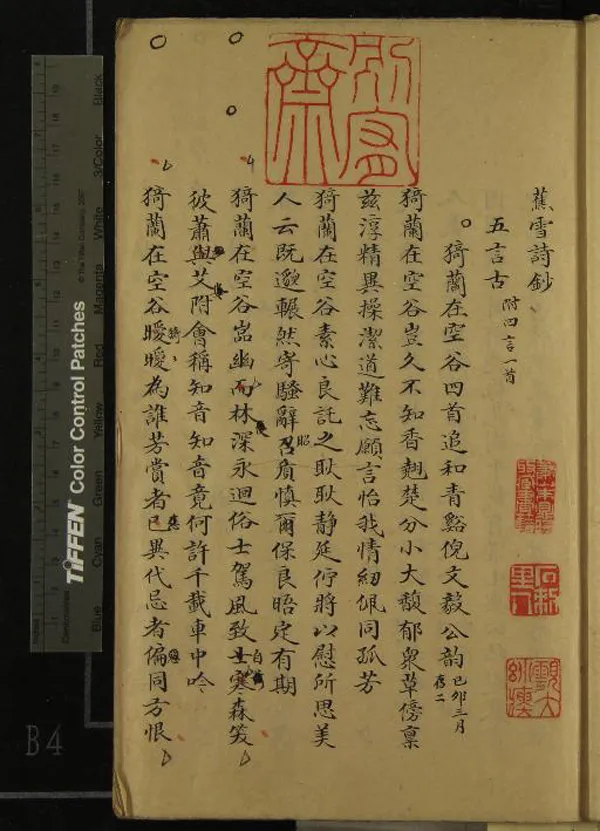 蕉雪詩鈔
五言古 附四言一首
猗蘭在空谷四首追和青谿倪文毅公韵 已卯三月 存二
猗蘭在空谷豈久不知香翹楚分小大馥郁衆草傍稟
茲淳精異操潔道難忘願言怡我情紉佩同孤芳
猗蘭在空谷素心良託之耿耿静延佇將以慰所思美
人云既邈囅然寄騷辭召質慎爾保良晤定有期
昭
猗蘭在空谷嵓幽而林深永迴俗士駕風致士寒森笈
彼蕭與艾附會稱知音知音竟何許千載車中吟
猗蘭在空谷曖曖為誰芳賞者已異代忌者偏同方恨
TIFFEN Color Control Patches
© The Tiffen Company, 2007
Blue Cyan Green Yellow Red Magenta White 3/Color Black
Centimetres
B4